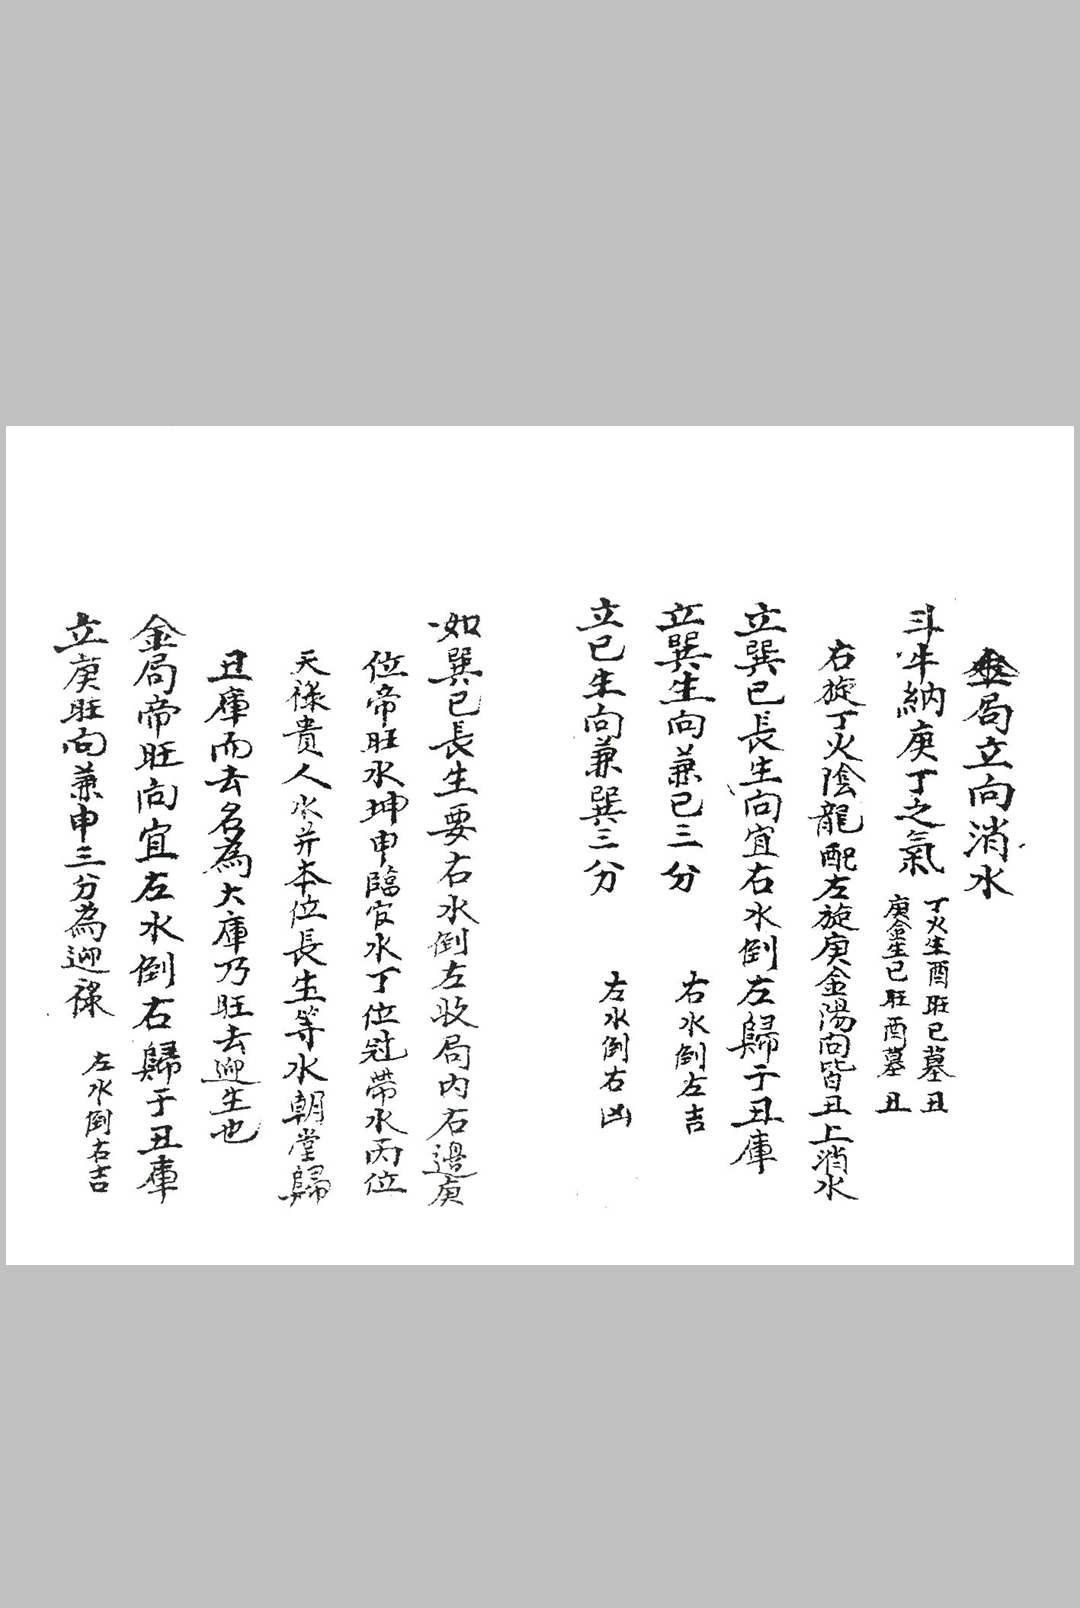 金局立向消水
斗牛納庚丁之氣 丁火生酉旺巳墓丑
庚金生巳旺酉墓丑
右旋丁火陰龍配左旋庚金陽向皆丑上消水
立巽巳長生向宜右水倒左歸于丑庫
立巽生向兼巳三分 右水倒左吉
立巳生向兼巽三分 左水倒右凶
如巽巳長生要右水倒左收局內右邊庚
位帝旺水坤申臨官水丁位冠帶水丙位
天祿貴人水并本位長生等水朝堂歸
丑庫而去名為大庫乃旺去迎生也
金局帝旺向宜左水倒右歸于丑庫
立庚旺向兼申三分為迎祿 左水倒右吉